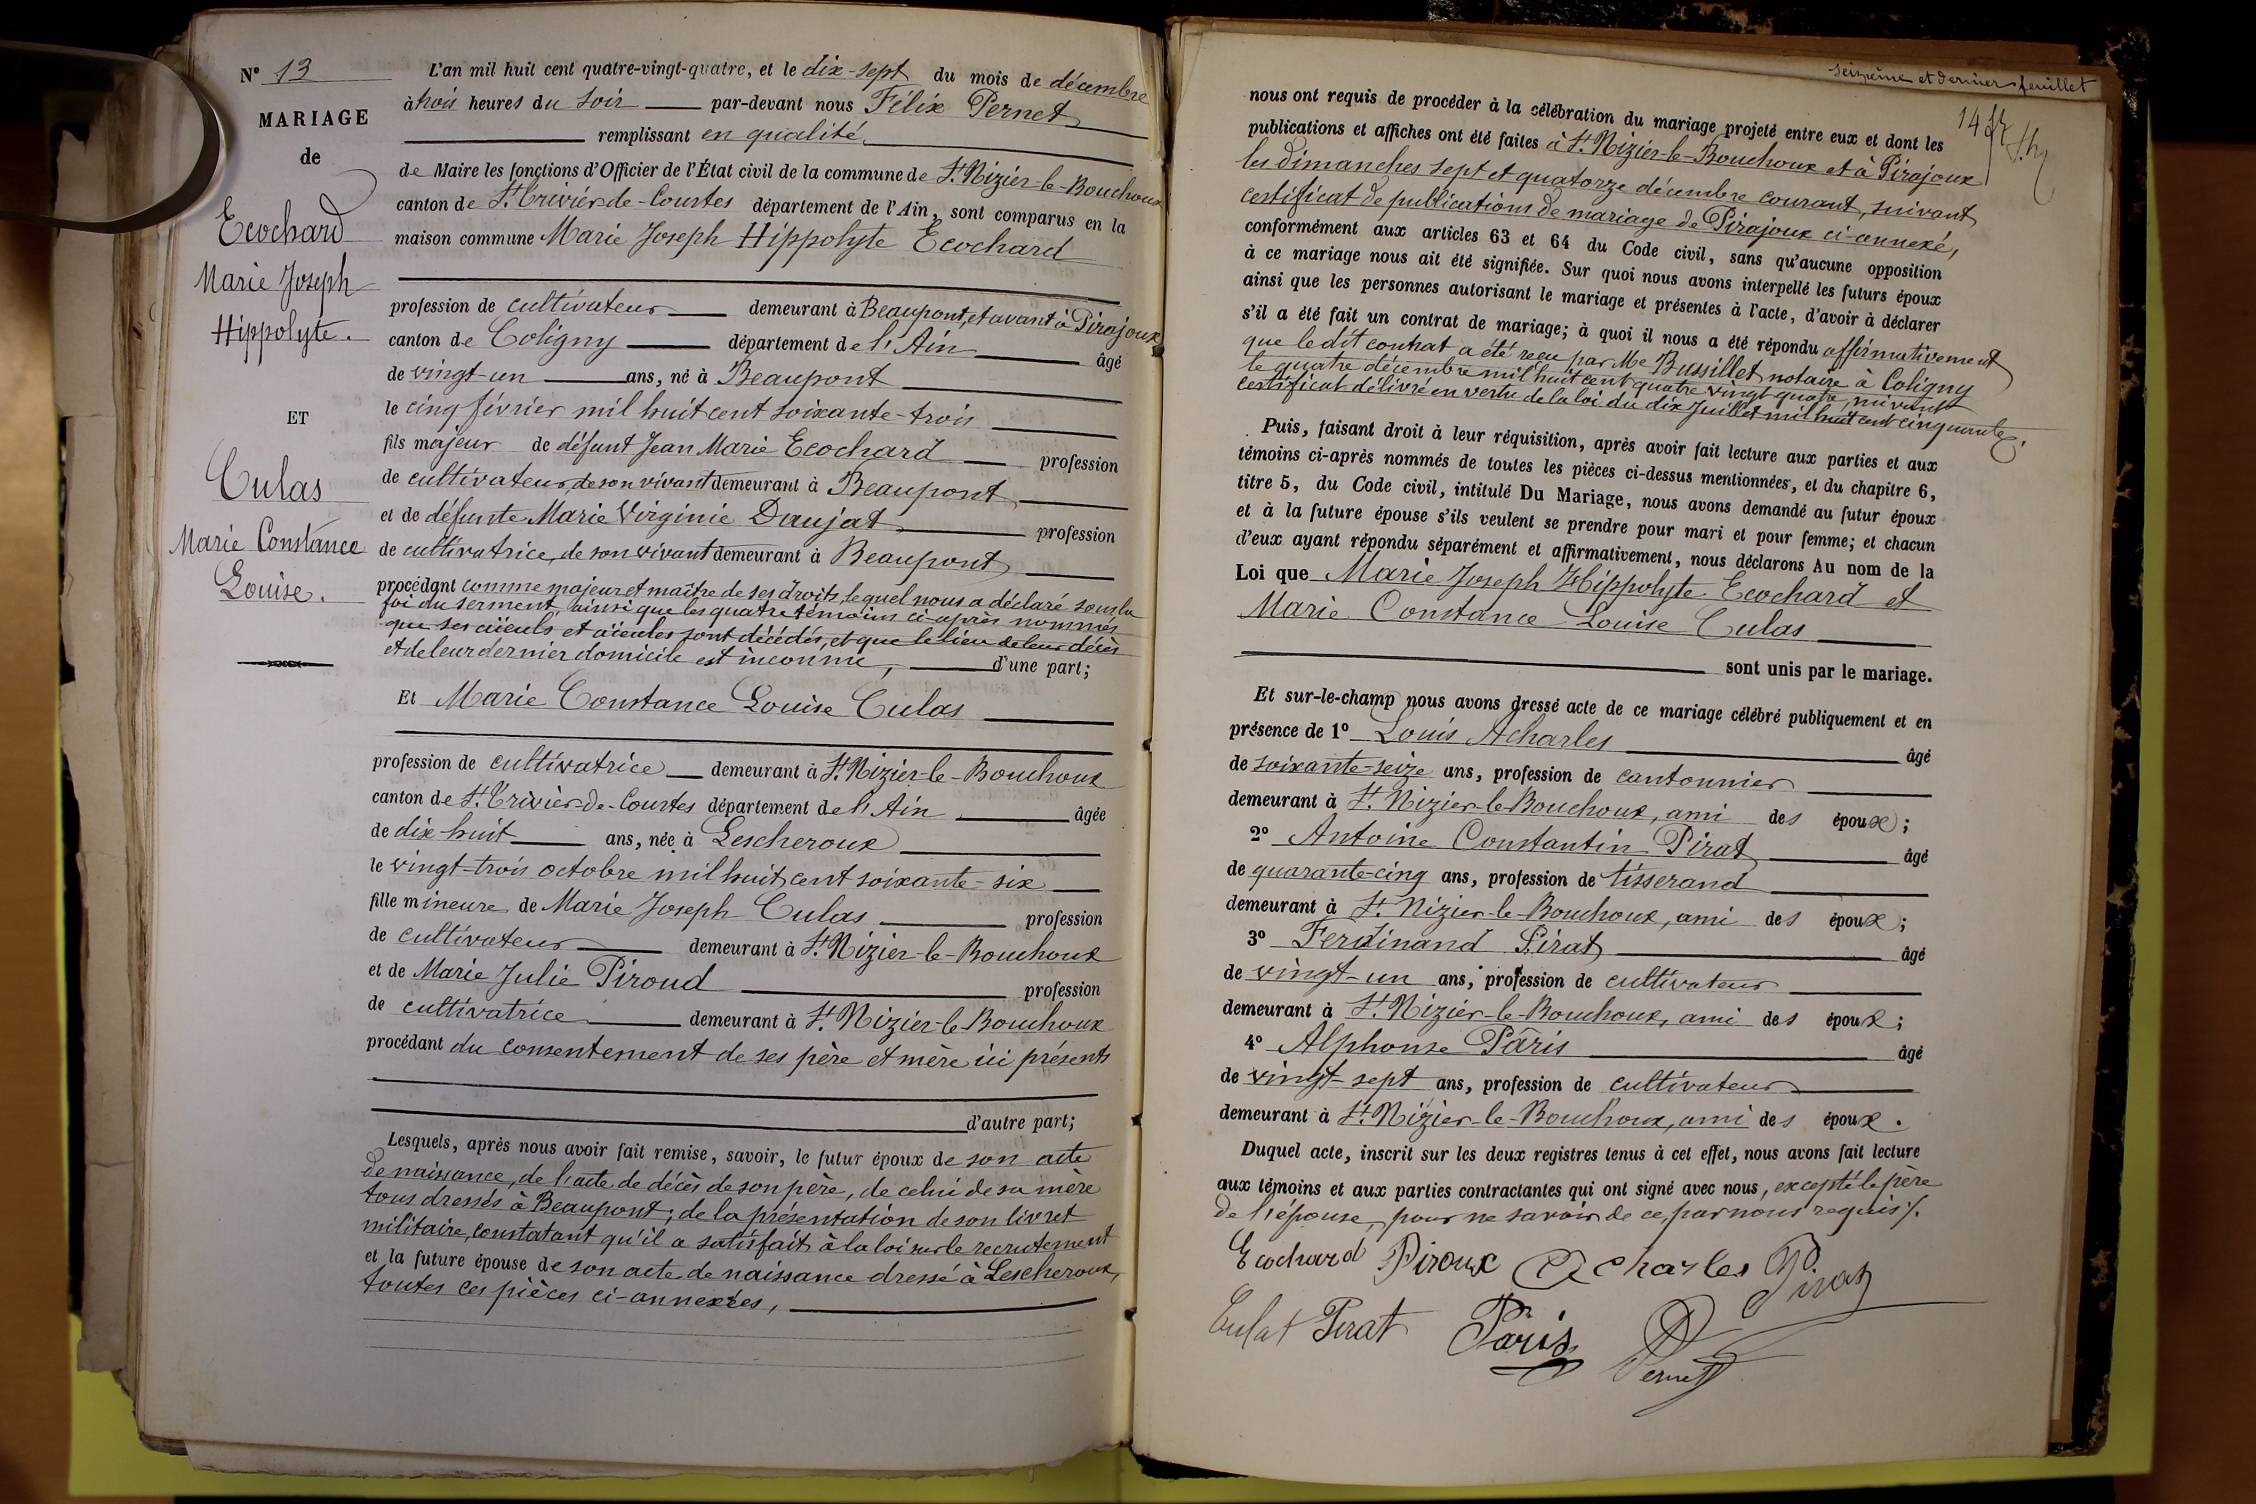 N° 13
MARIAGE
de
Ecochard
Marie Joseph
Hippolyte.
ET
Culas
Marie Constance
Louise.
L'an mil huit cent quatre-vingt-quatre, et le dix-sept du mois de décembre
à trois heures du soir par-devant nous Félix Pernet
remplissant en qualité
de Maire les fonctions d'Officier de l'État civil de la commune de St. Nizier-le-Bouchoux
canton de St. Trivier-de-Courtes département de l'Ain, sont comparus en la
maison commune Marie Joseph Hippolyte Ecochard
profession de cultivateur demeurant à Beaupont, et avant à Pirajoux
canton de Coligny département de l'Ain âgé
de vingt-un ans, né à Beaupont
le cinq février mil huit cent soixante-trois
fils majeur de défunt Jean Marie Ecochard profession
de cultivateur, de son vivant demeurant à Beaupont
et de défunte Marie Virginie Daujat profession
de cultivatrice, de son vivant demeurant à Beaupont
procédant comme majeur et maître de ses droits, lequel nous a déclaré sous la
foi du serment, ainsi que les quatre témoins ci-après nommés
que ses aïeuls et aïeules sont décédés, et que le lieu de leur décès
et de leur dernier domicile est inconnu, d'une part;
Et Marie Constance Louise Culas
profession de cultivatrice demeurant à St. Nizier-le-Bouchoux
canton de St. Trivier-de-Courtes département de l'Ain âgée
de dix-huit ans, née à Lescheroux
le vingt-trois octobre mil huit cent soixante-six
fille mineure de Marie Joseph Culas profession
de cultivateur demeurant à St. Nizier-le-Bouchoux
et de Marie Julie Piroud profession
de cultivatrice demeurant à St. Nizier-le-Bouchoux
procédant du consentement de ses père et mère ici présents
d'autre part;
Lesquels, après nous avoir fait remise, savoir, le futur époux de son acte
de naissance, de l'acte de décès de son père, de celui de sa mère
tous dressés à Beaupont; de la présentation de son livret
militaire, constatant qu'il a satisfait à la loi sur le recrutement
et la future épouse de son acte de naissance dressé à Lescheroux,
toutes ces pièces ci-annexées,
seizième et dernier feuillet
14
nous ont requis de procéder à la célébration du mariage projeté entre eux et dont les
publications et affiches ont été faites à St. Nizier-le-Bouchoux et à Pirajoux
les dimanches sept et quatorze décembre courant, suivant
certificat de publications de mariage de Pirajoux ci-annexé,
conformément aux articles 63 et 64 du Code civil, sans qu'aucune opposition
à ce mariage nous ait été signifiée. Sur quoi nous avons interpellé les futurs époux
ainsi que les personnes autorisant le mariage et présentes à l'acte, d'avoir à déclarer
s'il a été fait un contrat de mariage; à quoi il nous a été répondu affirmativement
que le dit contrat a été reçu par Me Bussillet notaire à Coligny
le quatre décembre mil huit cent quatre vingt quatre, suivant
certificat délivré en vertu de la loi du dix Juillet mil huit cent cinquante.
Puis, faisant droit à leur réquisition, après avoir fait lecture aux parties et aux
témoins ci-après nommés de toutes les pièces ci-dessus mentionnées, et du chapitre 6,
titre 5, du Code civil, intitulé Du Mariage, nous avons demandé au futur époux
et à la future épouse s'ils veulent se prendre pour mari et pour femme; et chacun
d'eux ayant répondu séparément et affirmativement, nous déclarons Au nom de la
Loi que Marie Joseph Hippolyte Ecochard et
Marie Constance Louise Culas
sont unis par le mariage.
Et sur-le-champ nous avons dressé acte de ce mariage célébré publiquement et en
présence de 1° Louis Acharles âgé
de soixante-seize ans, profession de cantonnier
demeurant à St. Nizier-le-Bouchoux, ami des époux;
2° Antoine Constantin Pirat âgé
de quarante-cinq ans, profession de tisserand
demeurant à St. Nizier-le-Bouchoux, ami des époux;
3° Ferdinand Pirat âgé
de vingt-un ans, profession de cultivateur
demeurant à St. Nizier-le-Bouchoux, ami des époux;
4° Alphonse Pâris âgé
de vingt-sept ans, profession de cultivateur
demeurant à St. Nizier-le-Bouchoux, ami des époux.
Duquel acte, inscrit sur les deux registres tenus à cet effet, nous avons fait lecture
aux témoins et aux parties contractantes qui ont signé avec nous, excepté le père
de l'épouse, pour ne savoir de ce, par nous requis /.
Ecochard Piroux Acharles Pirat
Culat Pirat Pâris Pernet